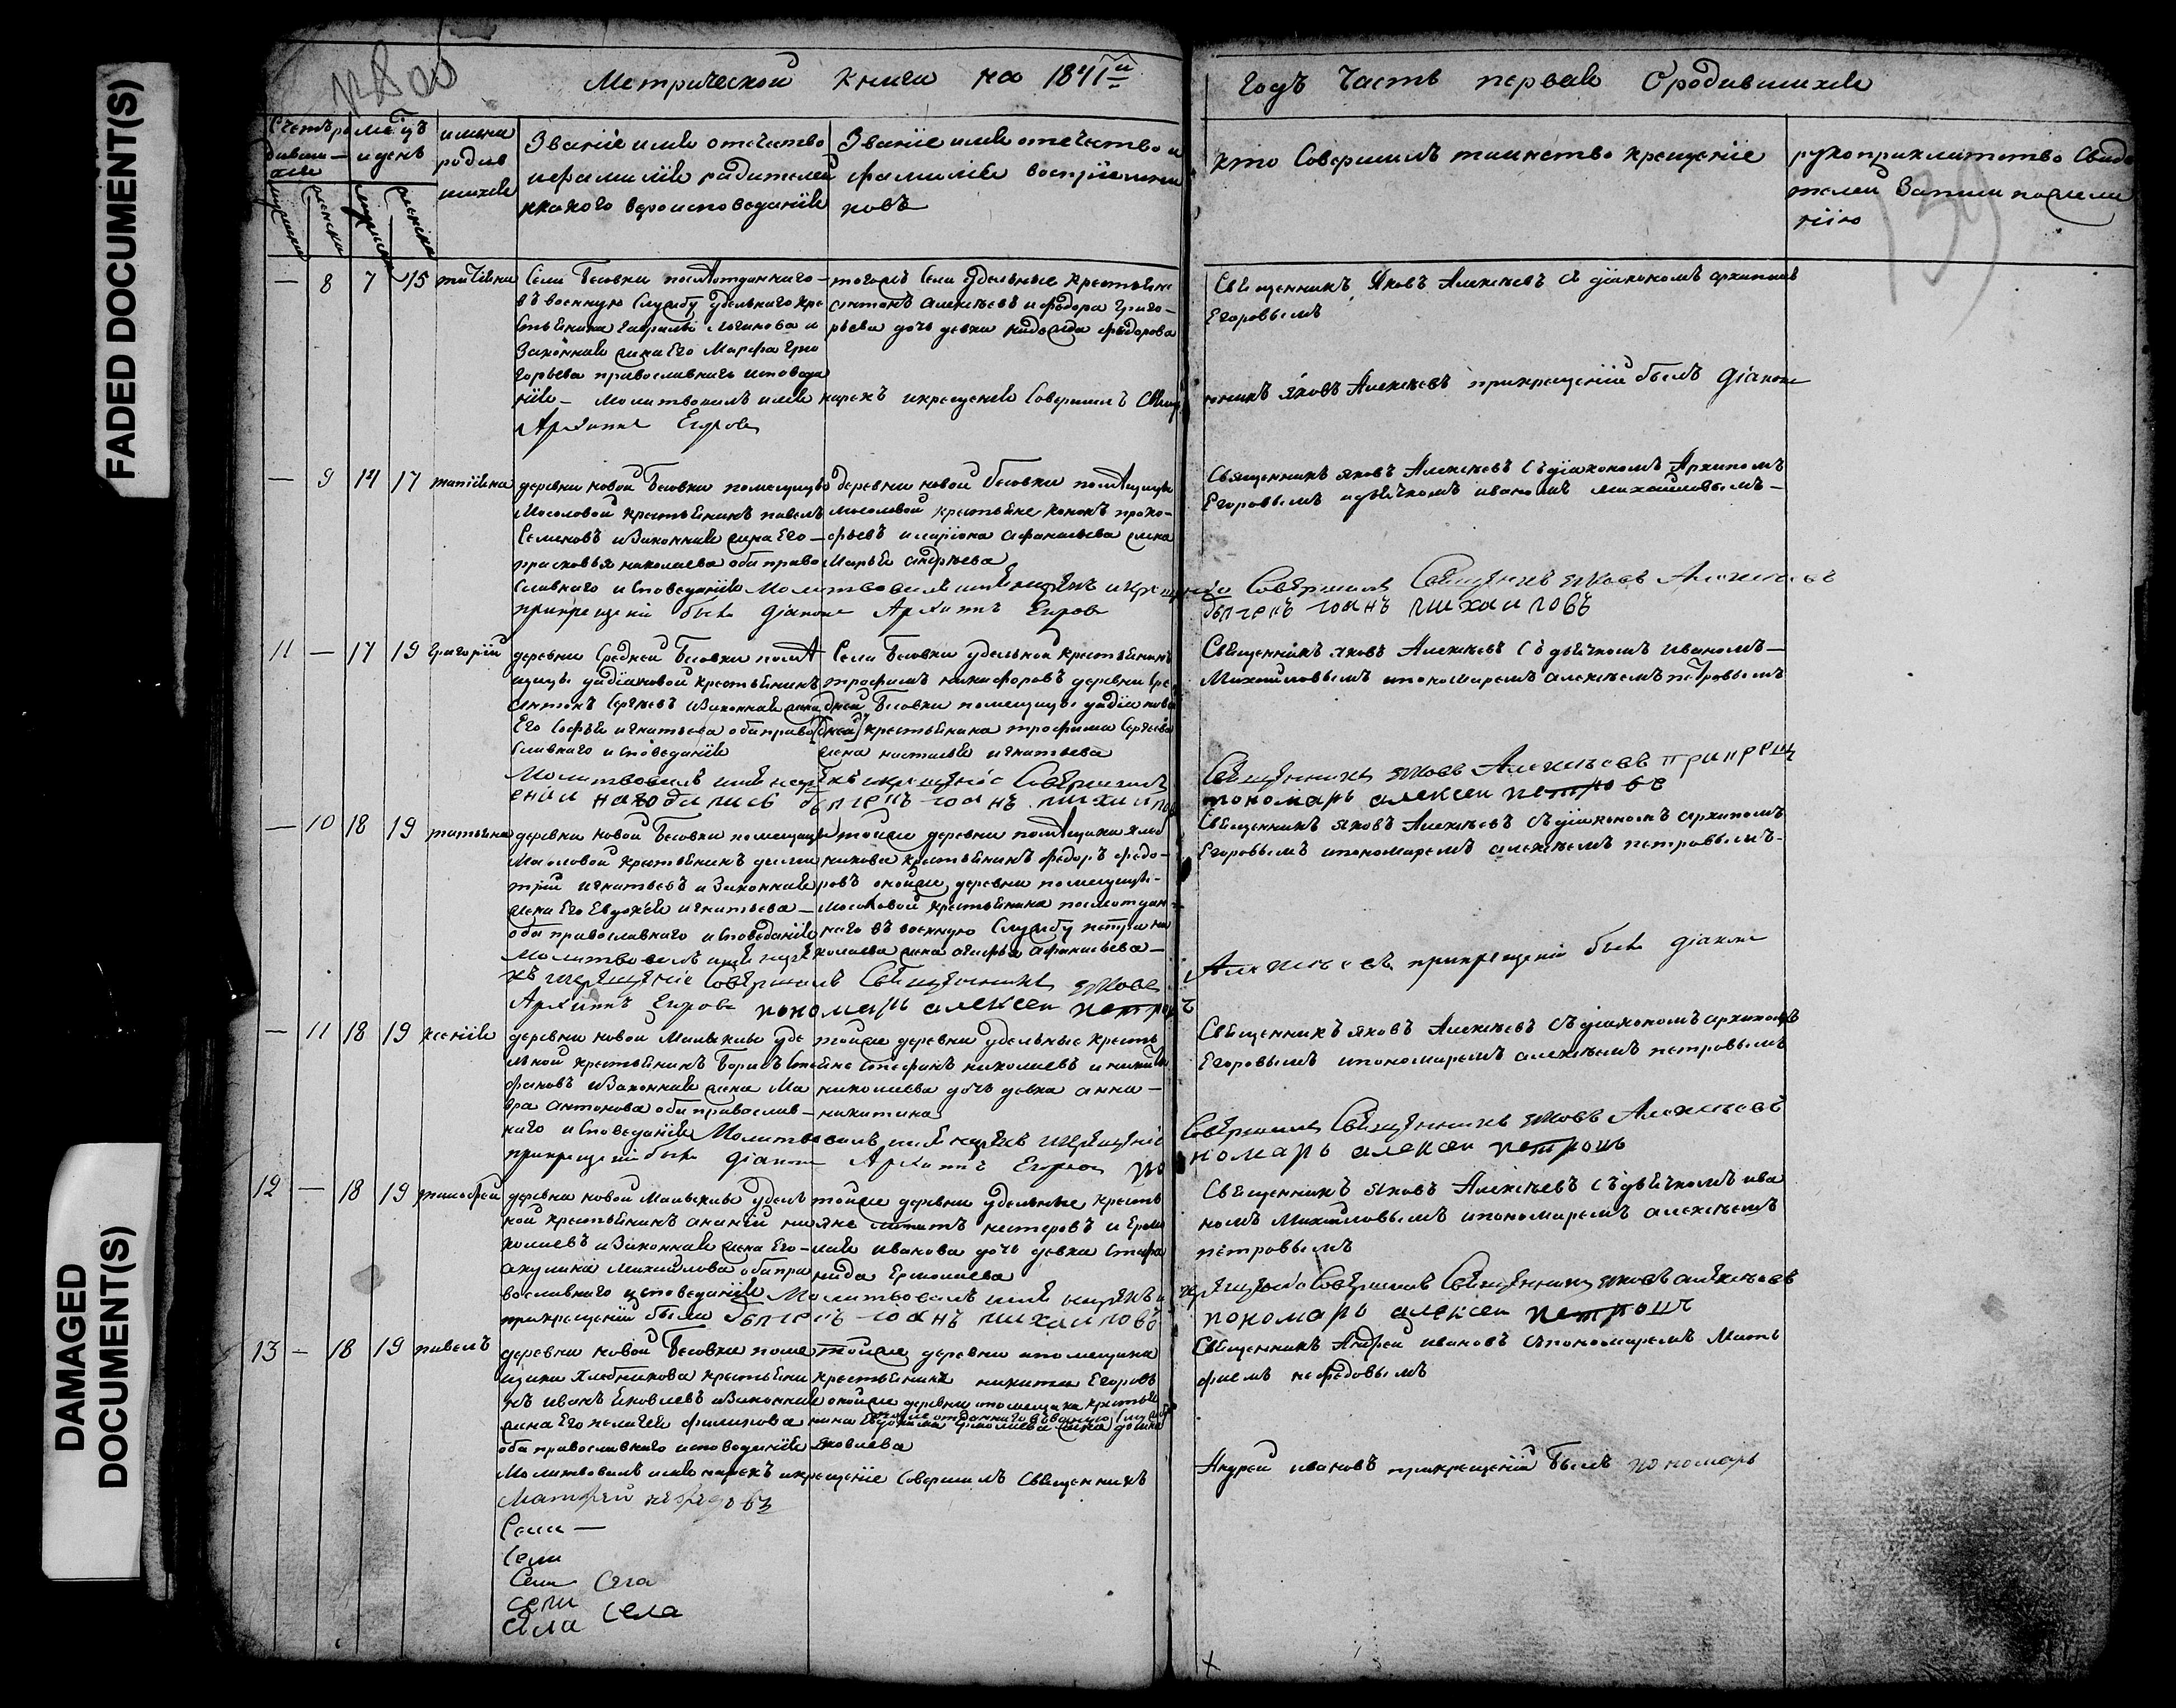 FADED DOCUMENT(S)
DAMAGED
DOCUMENT(S)
Метрической книги на 1841й
годъ Часть первая О родившихся
139
Счетъ ро
дивши
хся
мѣсяцъ
и день
имена
родив
шихся
Званіе имя отечество
и фамилія родителей
и какого вероисповеданія
Званіе имя отечество и
фамилія воспріемни
ковъ
кто Совершилъ таинство крещеніе
рукоприкладство Свиде
телей записи по желанию
— 8 7 15
Села Бесовки послѣ отданнаго
въ военную Службу удельнаго кре
стьянина Гаврилы Логинова и
Законная жена Его Марфа Гри
горьева православнаго исповеда
нія — Молитвовалъ имя нарекъ и крещеніе Совершилъ Свящ
Архипъ Егоровъ
тогожъ Села удельные крестьяне
Антонъ Алексѣевъ и Федора Григо-
рьева дочь девка Федорова
Священникъ Яковъ Алексѣевъ съ діакономъ Архипомъ
Егоровымъ
енникъ Яковъ Алексѣевъ при крещеніи былъ діаконъ
— 9 14 17
деревни новой Бесовки помещицы
Мосоловой крестьянинъ павелъ
Семеновъ и Законная жена Его —
прасковья николаева оба право
славнаго исповеданія Молитвовалъ имя нарекъ и крещеніе
при крещеніи былъ діаконъ Архипъ Егоровъ
деревни новой Бесовки помѣщицы
Мосоловой крестьяне кононъ проко-
фьевъ и Афанасьева жена
Марья Андрѣева
Священникъ Яковъ Алексѣевъ съ діакономъ Архипомъ
Егоровымъ и дьячкомъ иваномъ михайловымъ —
Совершилъ Священникъ Яковъ Алексѣевъ
дьячекъ Іоанъ михаиловъ
11 — 17 19 Григорій
деревни Средней Бесовки помѣ
щицы крестьянинъ
Антонъ Сергѣевъ и Законная жена
Его Софья игнатьева оба право
славнаго исповеданія
Молитвовалъ имя нарекъ и крещеніе Совершилъ
еніи находились дьячекъ Іоанъ михаилов
Села Бесовки удельной крестьянинъ
трофимъ никифоровъ деревни Сре
дней Бесовки помещицы
крестьянина трофима Сергѣева
жена настасья игнатьева
Священникъ Яковъ Алексѣевъ съ дьячкомъ иваномъ —
Михайловымъ и пономаремъ алексѣемъ петровымъ
Священникъ Яковъ Алексѣевъ при крещ
пономарь алексеи петровъ
— 10 18 19 татьяна
деревни новой Бесовки помещицы
Мосоловой крестьянинъ дими
трій игнатьевъ и Законная
жена Его Евдокея игнатьева —
оба православнаго исповеданія
Молитвовалъ имя наре
къ и крещеніе Совершилъ Священникъ Яковъ
Архипъ Егоровъ пономарь алексеи петровъ
тойже деревни помѣщика хлеб
никова крестьянинъ федоръ федо-
ровъ и тойже деревни помещицы —
Мосоловой крестьянина после отдан
наго въ военную Службу петра ни
колаева жена Афанасьева —
Священникъ Яковъ Алексѣевъ съ діакономъ Архипомъ
Егоровымъ и пономаремъ алексѣемъ петровымъ —
Алексѣевъ при крещеніи былъ діаконъ
— 11 18 19 ксенія
деревни новой Малыклы уде
льной крестьянинъ Борисъ Сте
фановъ и Законная жена Ма
вра Антонова оба православ —
наго исповеданія Молитвовалъ имя нарекъ и крещеніе
при крещеніи былъ діаконъ Архипъ Егоровъ по
тойже деревни удельные кресть
яне Стефанъ николаевъ и никиты
николаева дочь девка анна —
никитина
Священникъ Яковъ Алексѣевъ съ діакономъ архипомъ
Егоровымъ и пономаремъ алексѣемъ петровымъ
Совершилъ Священникъ Яковъ Алексѣевъ
номарь алексеи петровъ
12 — 18 19 тимофей
деревни новой Малыклы удель
ной крестьянинъ ананій ни
колаевъ и Законная жена Его —
акулина Михайлова оба пра
вославнаго исповеданія Молитвовалъ имя нарекъ и
при крещеніи были дьячекъ Іоанъ михаиловъ
тойже деревни удельные кресть
яне нестеровъ и Ермо
лая иванова дочь девка Степа
нида Ермолаева
Священникъ Яковъ Алексѣевъ съ дьячкомъ ива
номъ Михайловымъ и пономаремъ алексѣемъ
петровымъ
крещеніе Совершилъ Священникъ Яковъ алексѣевъ
пономарь алексеи петровъ
13 — 18 19 павелъ
деревни новой Бесовки поме
щика Хлебникова крестьяни
нъ иванъ Яковлевъ и Законная
жена Его пелагея филипова
оба православнаго исповеданія
Молитвовалъ имя нарекъ и крещеніе Совершилъ Священникъ
Матфеи нефедовъ
тойже деревни и помещика
крестьянинъ никита Егоровъ
и тойже деревни и помещика крестья
после отданнаго въ военную службу
нина Евдокима Ермолаева жена домна
Яковлева
Священникъ Андрей ивановъ съ пономаремъ Матѳ
фиемъ нефедовымъ
Андрей ивановъ при крещеніи Былъ пономарь
Села —
Села
Села Села
села
Села Села